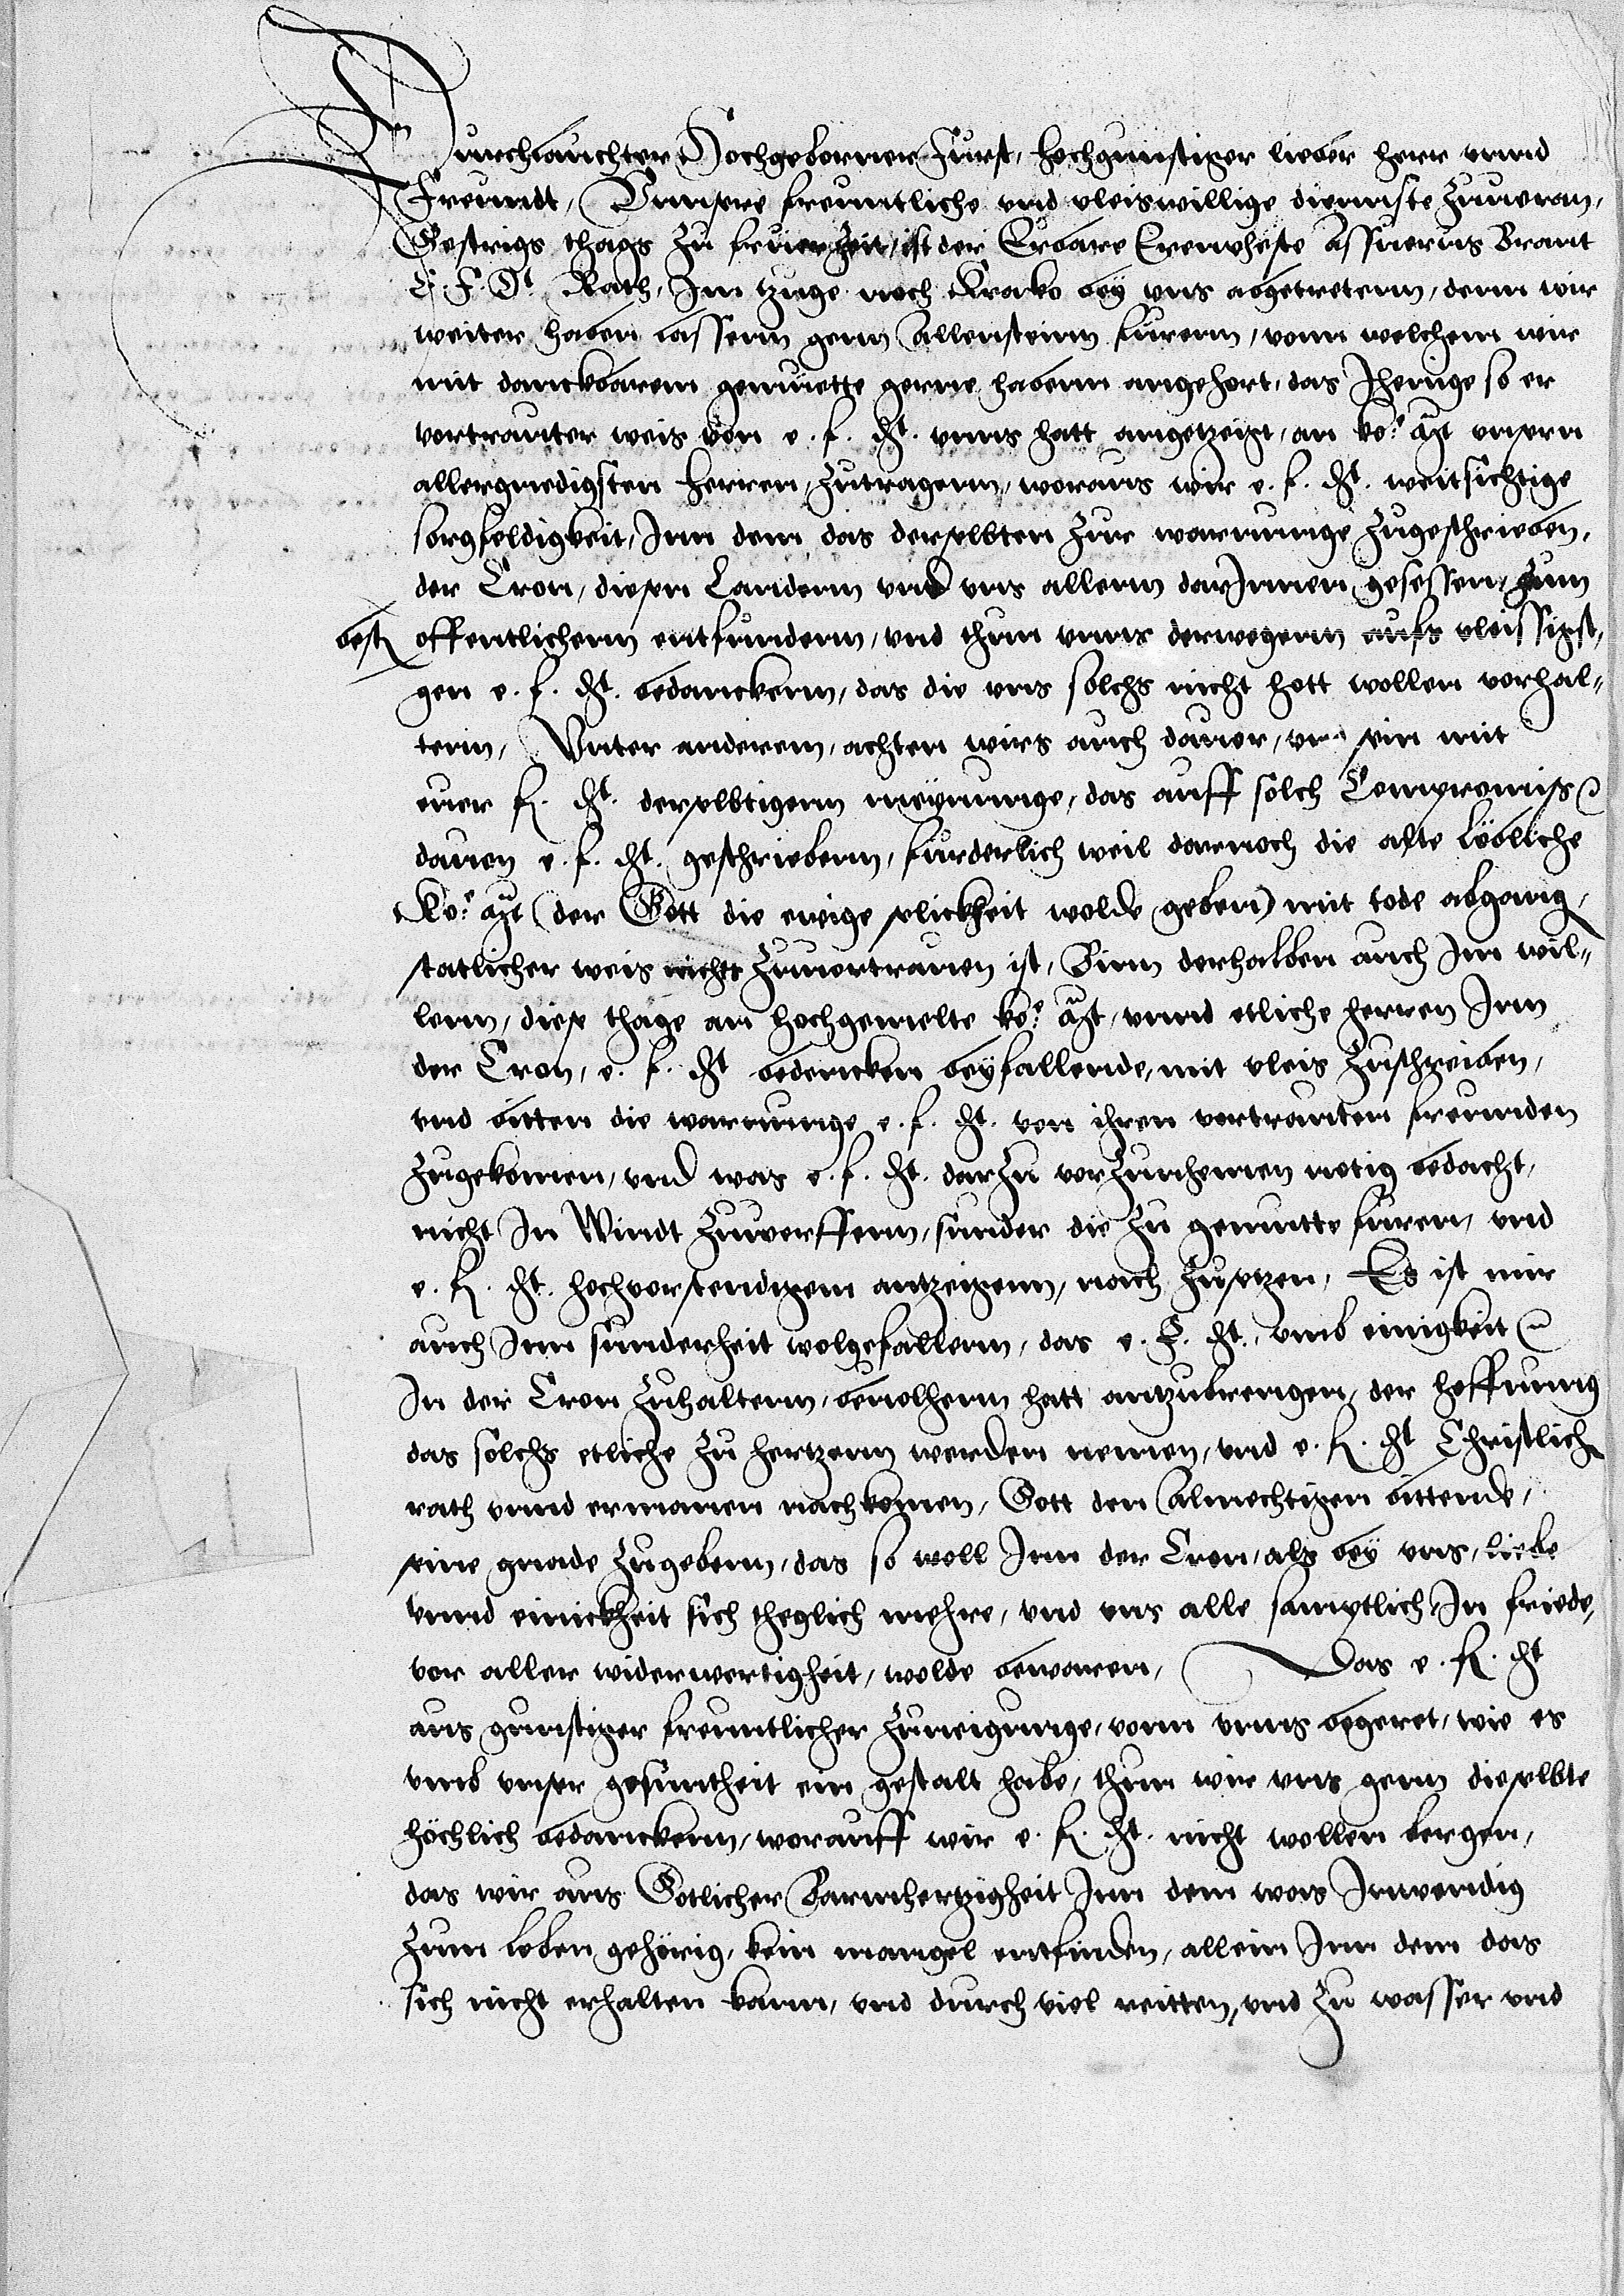 Durchlauchter Hochgeborner Furst, hochgunstiger lieber herr vnnd
Freundt, Vnnsere freuntliche vnd vleiswillige diennste zuuoran,
Gestrigs thags zu fruer zeit, ist der Erbare Erenvheste Assuerus Brant
E. F. Dt. Rath, Im tzuge noch Krako bey vns abgetretenn, denn wir
weiter haben lassenn genn Allensteinn furenn, vonn welchem wir
mit danckbarem gemuette gerne habenn angehort, das Jhenige so er
vortrauter weis von e. f. dt. vnns hatt angetzeigt, an ko: Mt vnsern
allergnedigsten herren, zutragenn, woraus wir e. f. dt. weitsichtige
sorgfeldigkeit, Inn dem das derselbten zur warnunge zugeschrieben,
der Cron, diesen Landenn vnd vns allenn darInnen gesessen, zum
best offentlichenn entfundenn, vnd thun vnns derwegenn aufs vleissigst,
gen e. f. dt. bedanckenn, das die vns solchs nicht hott wollen vorhal-
tenn, Vnter anderem, achten wirs auch dauor, vnd sein mit
euer f. dt. derselbtigenn meynunge, das auff solch Compromiss
dauon e. f. dt. geschriebenn, furderlich weil darnoch die alte löbliche
Ko: Mt (der Gott die ewige selickheit wolde geben) mit tode abgang,
statlicher weis nicht zuuortrauen ist, Sinn derhalben auch Im wil-
lenn, diese thage an hochgemelte ko: Mt, vnnd etliche herren Inn
der Cron, e. f. dt bedencken beyfallende, mit vleis zuschreiben,
vnd bitten die warnunge e. f. dt. von ihren vortrauten freunden
zugekomen, vnd was e. f. dt. darzu vorzunhemen notig bedacht,
nicht In Windt zuwerffenn, sunder die zu gemutte furen, vnd
e. f. dt. hochvorstendigem antzeigenn, nach zusetzen, Es ist mir
auch Inn sunderheit wolgefallenn, das e. F. dt., vmb einigkeit
In der Cron zuhaltenn, beuolhenn hatt antzubrengen, der hoffnung
das solchs etliche zu hertzenn werden nemen, vnd e. f. dt Christlich
rath vnnd ermanen nachkomen, Gott den Almechtigen bittende,
seine gnade zugebenn, das so woll Inn der Cron, als bey vns, liebe
vnnd einickheit sich theglich mehre, vnd vns alle samptlich In friede,
vor aller widerwertigheit, wolde bewaren, Das e. f. dt
aus gunstiger freuntlicher zuneigunge, vonn vnns begeret, wie es
vmb vnser gesuntheit ein gestalt habe, thun wir vns genn dieselbte
höchlich bedanckenn, worauff wir e. f. dt. nicht wollen bergen,
das wir aus Gotlicher Barmhertzigheit Inn dem was Inwendig
zum leben gehörig, kein mangel entfinden, allein Inn dem das
sich nicht erhalten kann, vnd durch viel reitten, vnd zu wasser vnd